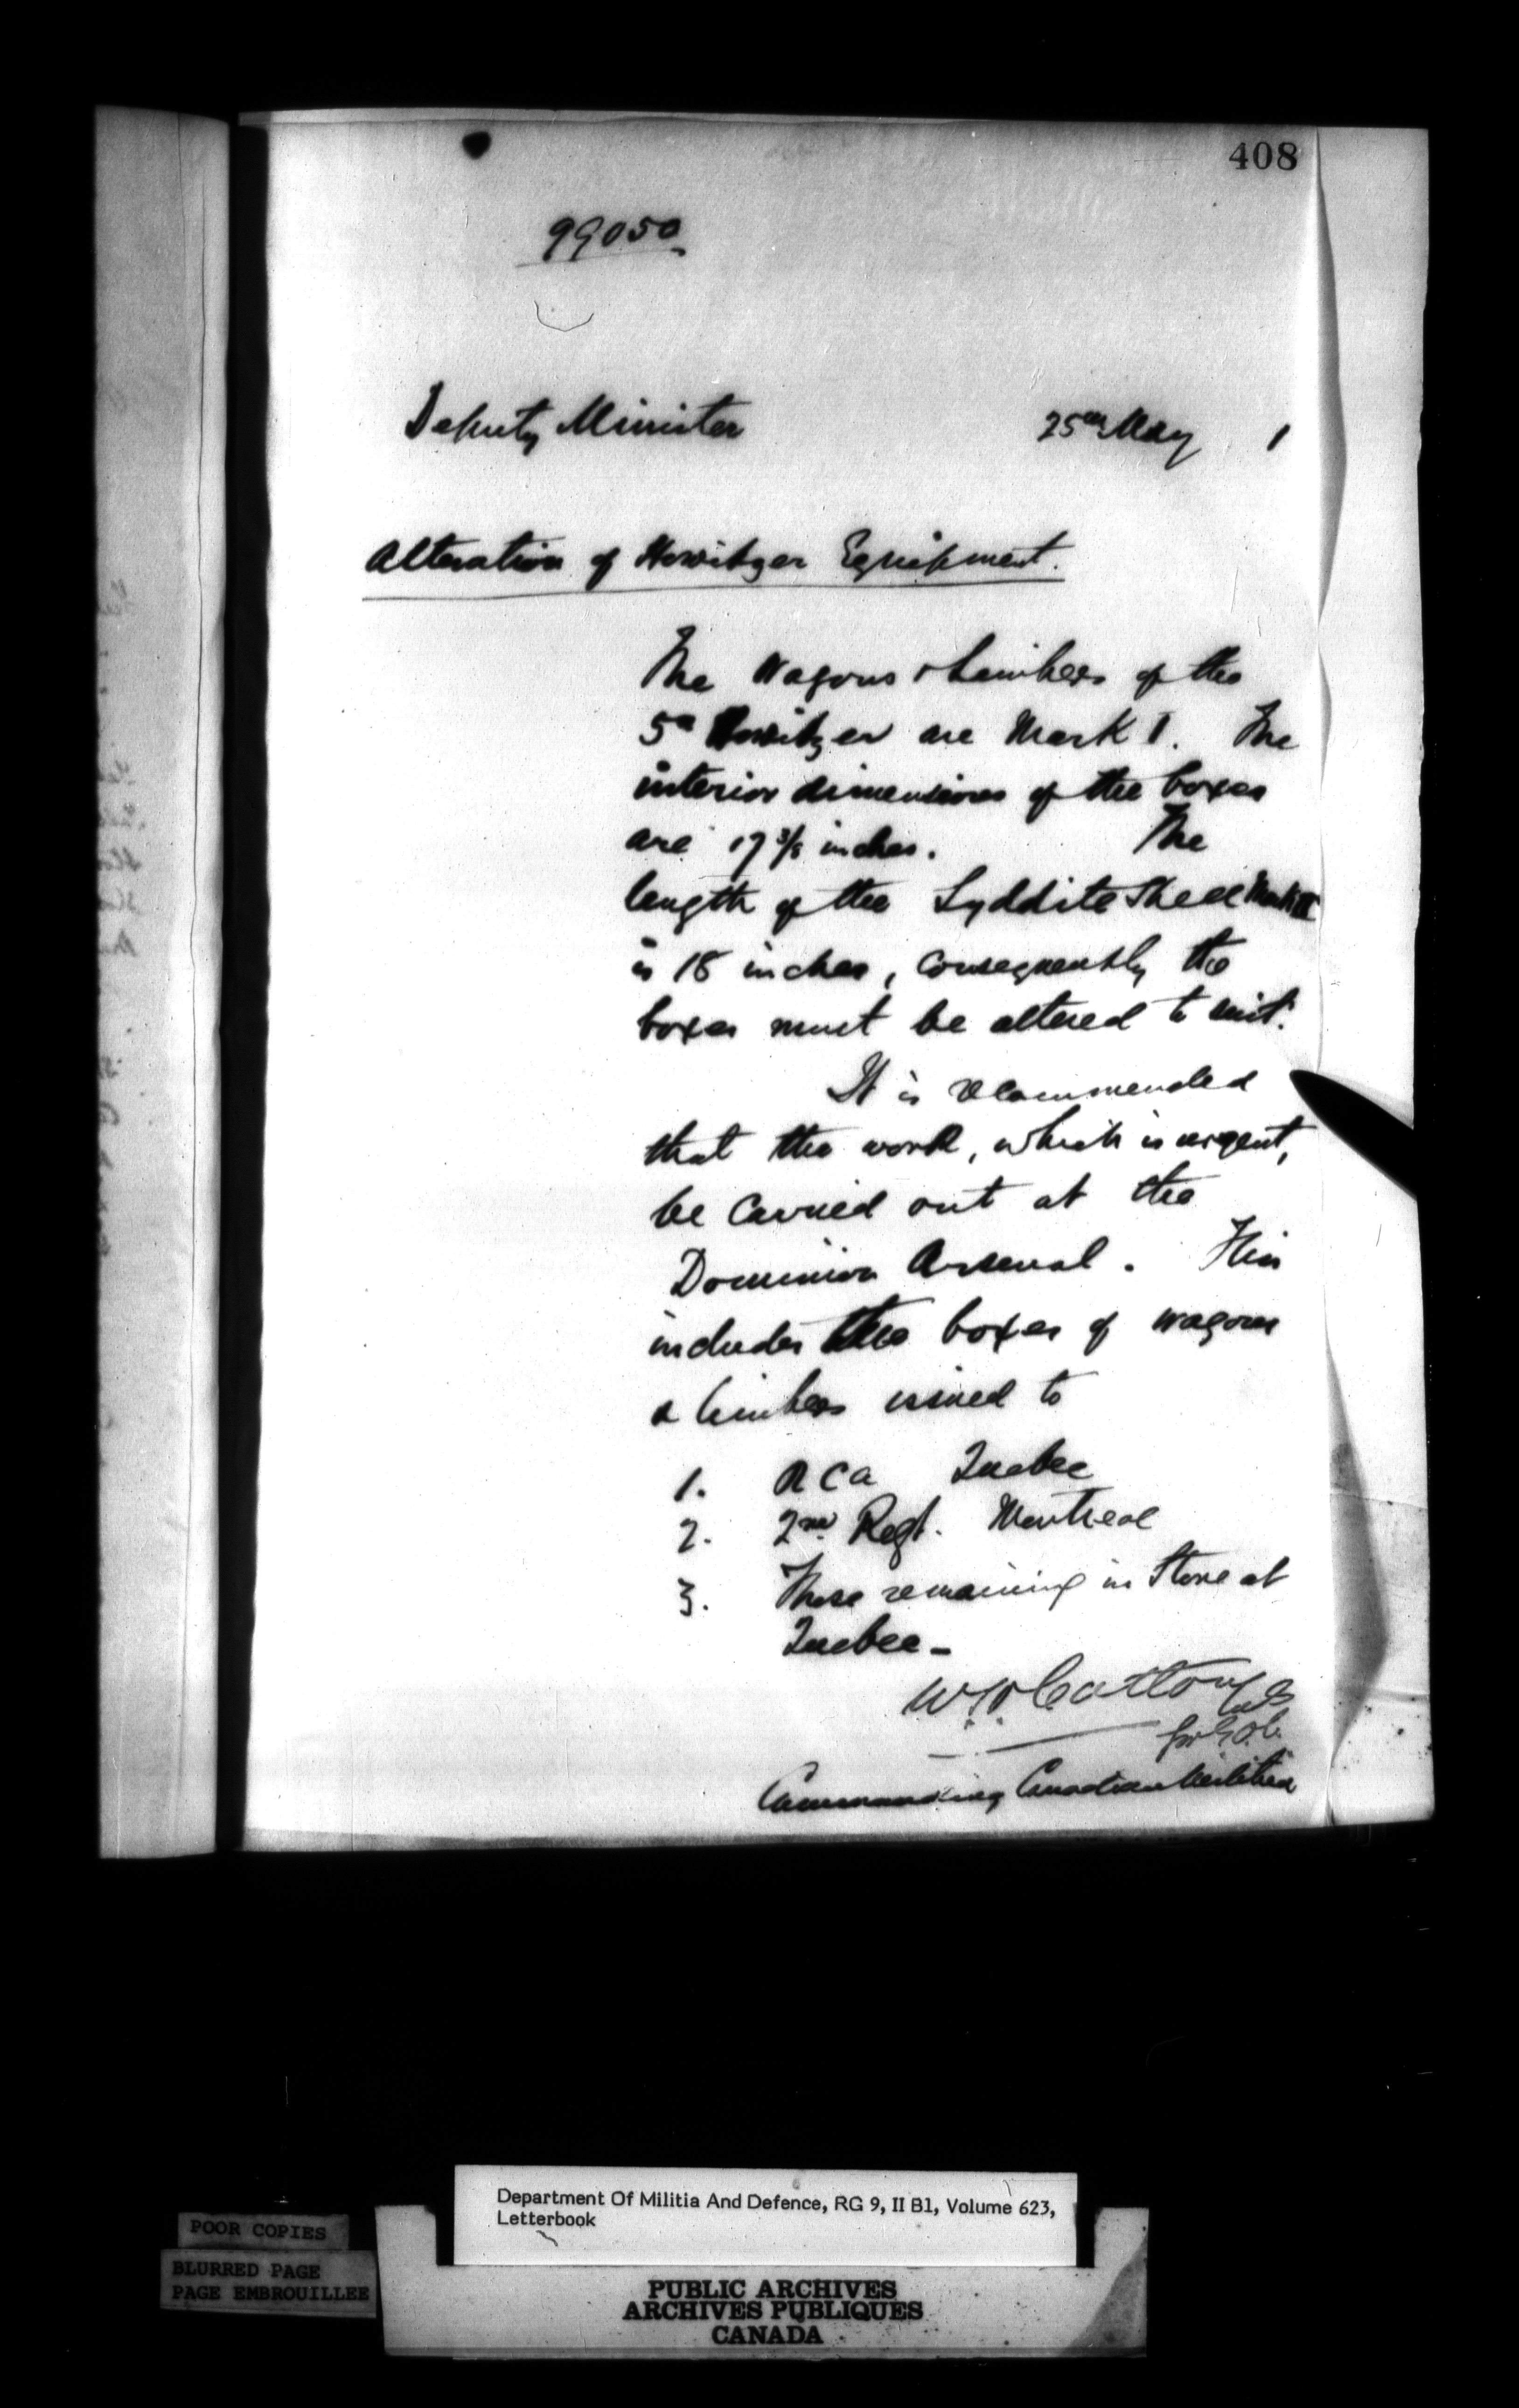 408
99050
Deputy Minister 25th May 1
Alteration of Howitzer Equipment.
The Wagons & Limbers of the
5" Howitzer are Mark I. The
interior dimensions of the boxes
are 17 3/8 inches. The
length of the Lyddite Shell Mark III
is 18 inches, consequently the
boxes must be altered to suit.
It is recommended
that the work, which is urgent,
be carried out at the
Dominion Arsenal. This
includes the boxes of wagons
& limbers issued to
1. RCA Quebec
2. 2nd Regt. Montreal
3. Those remaining in Store at
Quebec -
Commanding Canadian Militia
Department Of Militia And Defence, RG 9, II B1, Volume 623,
Letterbook
POOR COPIES
BLURRED PAGE
PAGE EMBROUILLEE
PUBLIC ARCHIVES
ARCHIVES PUBLIQUES
CANADA